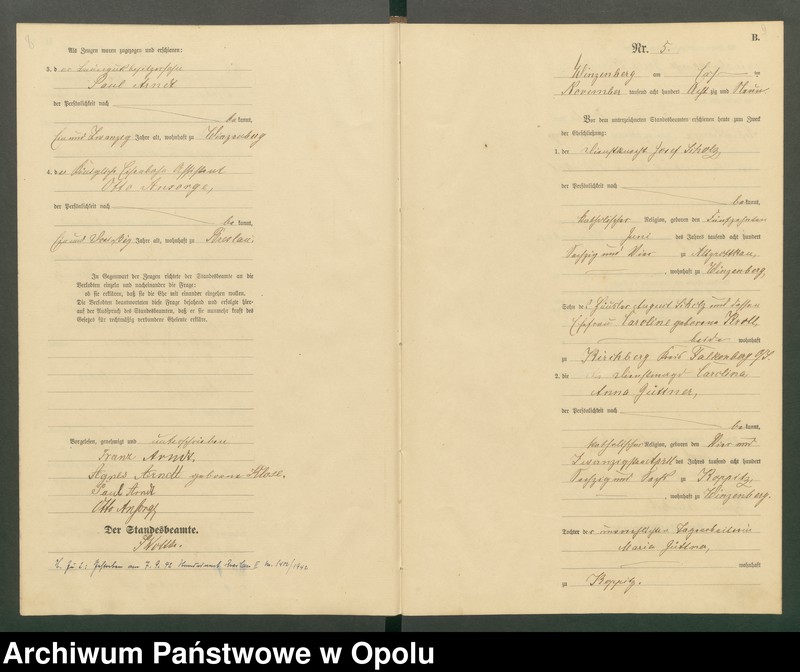 Als Zeugen waren zugezogen und erschienen:
3. der
Paul Arndt
der Persönlichkeit nach
bekannt,
und Zwanzig Jahre alt, wohnhaft zu Winzenberg
4. der Assistent
Otto Ansorge,
der Persönlichkeit nach
bekannt,
und Dreißig Jahre alt, wohnhaft zu Breslau.
In Gegenwart der Zeugen richtete der Standesbeamte an die
Verlobten einzeln und nacheinander die Frage:
ob sie erklären, daß sie die Ehe mit einander eingehen wollen.
Die Verlobten beantworteten diese Frage bejahend und erfolgte hier-
auf der Ausspruch des Standesbeamten, daß er sie nunmehr kraft des
Gesetzes für rechtmäßig verbundene Eheleute erkläre.
Vorgelesen, genehmigt und unterschrieben
Franz Arndt.
Agnes Arndt geborene
Paul Arndt
Otto Ansorge
Der Standesbeamte.
Zu 2: Gestorben am 7. 9. 42 Standesamt Breslau
B.
Nr. 5.
Winzenberg am ten
November tausend acht hundert Achtzig und Neun
Vor dem unterzeichneten Standesbeamten erschienen heute zum Zweck
der Eheschließung:
1. der Dienstknecht Josef Scholz,
der Persönlichkeit nach
bekannt,
katholischer Religion, geboren den Fünfzehnten
Juni des Jahres tausend acht hundert
Sechzig und Vier zu Altgrottkau,
, wohnhaft zu Winzenberg,
Sohn des Häusler August Scholz und dessen
Ehefrau Caroline geborene
beide wohnhaft
zu Kirchberg Kreis Falkenberg O/S.
2. die Dienstmagd Carolina
Anna Güttner,
der Persönlichkeit nach
bekannt,
katholischer Religion, geboren den Vier und
Zwanzigsten April des Jahres tausend acht hundert
Sechzig und Sechs zu Koppitz,
, wohnhaft zu Winzenberg.
Tochter der unverehelichten Tagearbeiterin
Maria Güttner,
wohnhaft
zu Koppitz.
Archiwum Państwowe w Opolu